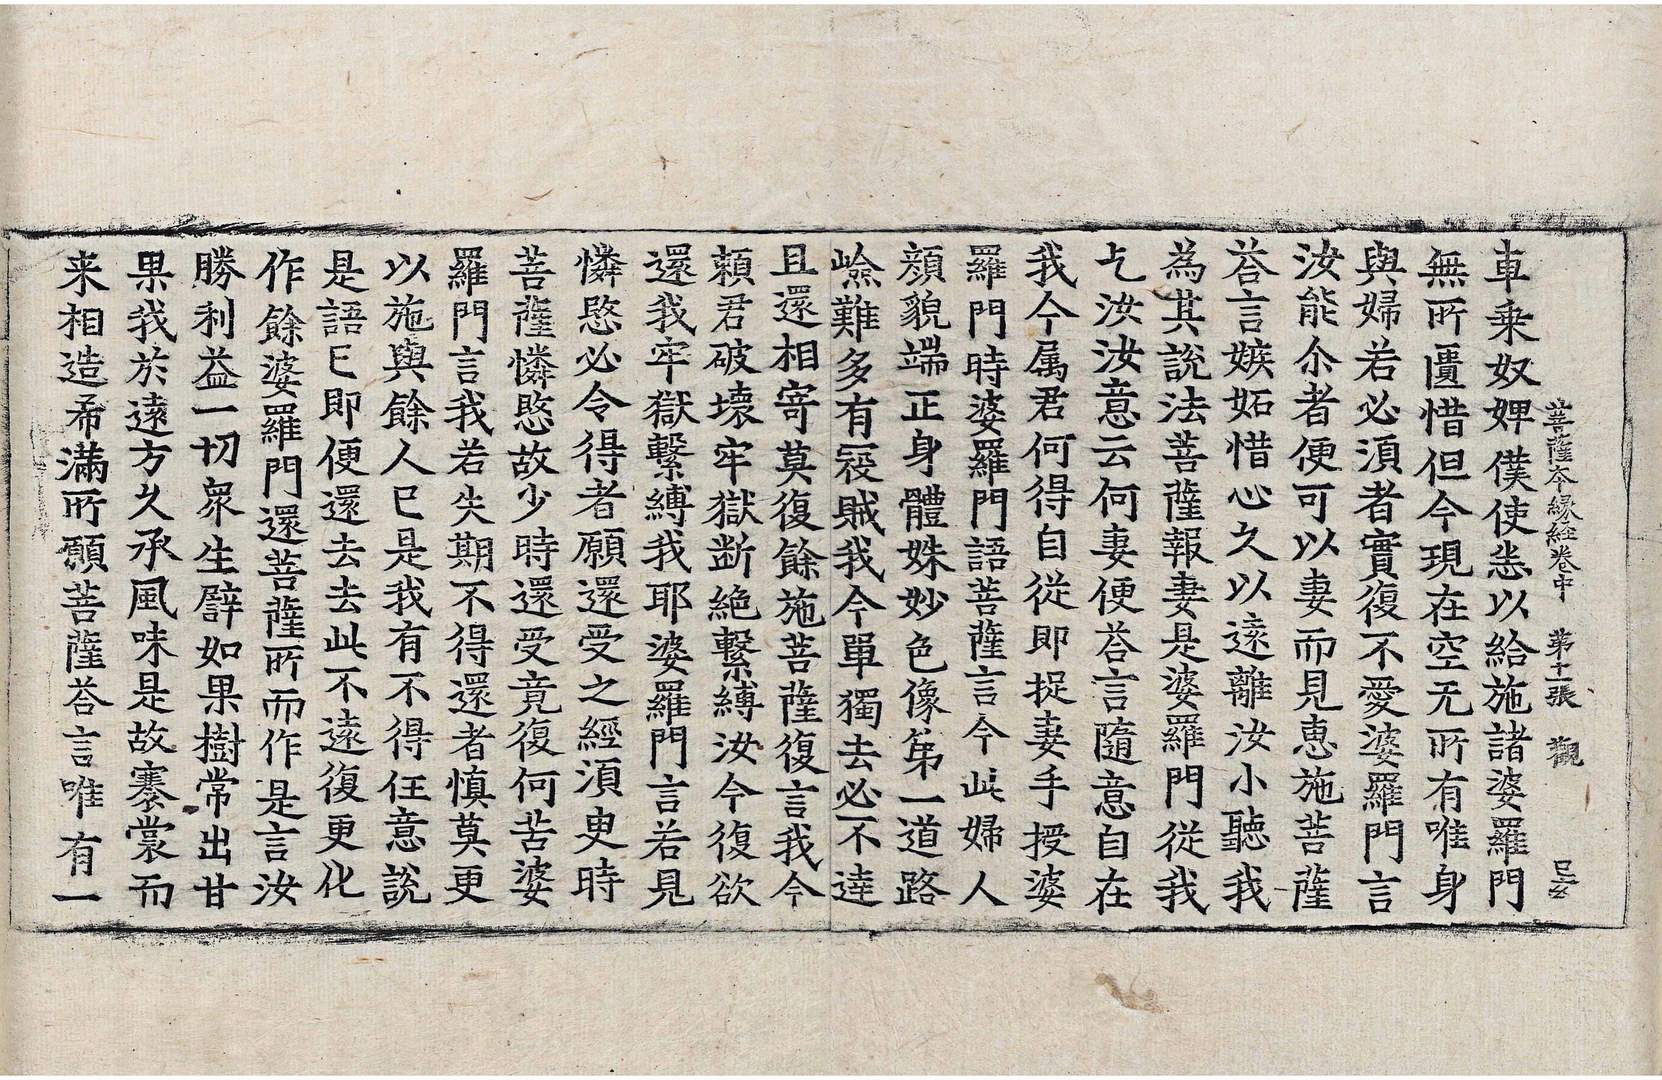 菩薩本縁経卷中 第十一張 觀
車乗奴婢僕使悉以給施諸婆羅門
無所匱惜但今現在空无所有唯身
與婦若必湏者實復不愛婆羅門言
汝能尒者便可以妻而見惠施菩薩
荅言嫉妬惜心久以逺離汝小聽我
為其說法菩薩報妻是婆羅門從我
乞汝汝意云何妻便荅言隨意自在
我今属君何得自從即捉妻手授婆
羅門時婆羅門語菩薩言今此婦人
顔貌端正身體姝妙色像第一道路
嶮難多有㓂賊我今單獨去必不達
且還相寄莫復餘施菩薩復言我今
頼君破壞牢獄断絶繫縛汝今復欲
還我牢獄繫縛我耶婆羅門言若見
憐愍必令得者願還受之經湏臾時
菩薩憐愍故少時還受竟復何苦婆
羅門言我若失期不得還者慎莫更
以施與餘人已是我有不得任意說
是語已即便還去去此不逺復更化
作餘婆羅門還菩薩所而作是言汝
勝利益一切衆生譬如果樹常出甘
果我於逺方久承風味是故褰裳而
来相造希滿所願菩薩荅言唯有一